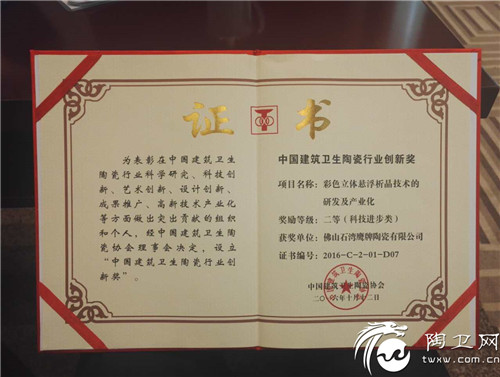 证 书
为表彰在中国建筑卫生
陶瓷行业科学研究、科技创
新、艺术创新、设计创新、
成果推广、高新技术产业化
等方面做出突出贡献的组织
和个人，经中国建筑卫生陶
瓷协会理事会决定，设立
“中国建筑卫生陶瓷行业创
新奖”
中国建筑卫生陶瓷行业创新奖
项目名称：彩色立体悬浮析晶技术的
研发及产业化
奖励等级：二等（科技进步类）
获奖单位：佛山石湾鹰牌陶瓷有限公司
证书编号：2016-C-2-01-D07
中国建筑卫生陶瓷协会
二〇一六年十月
二日
陶卫网
www.twxw.com.cn